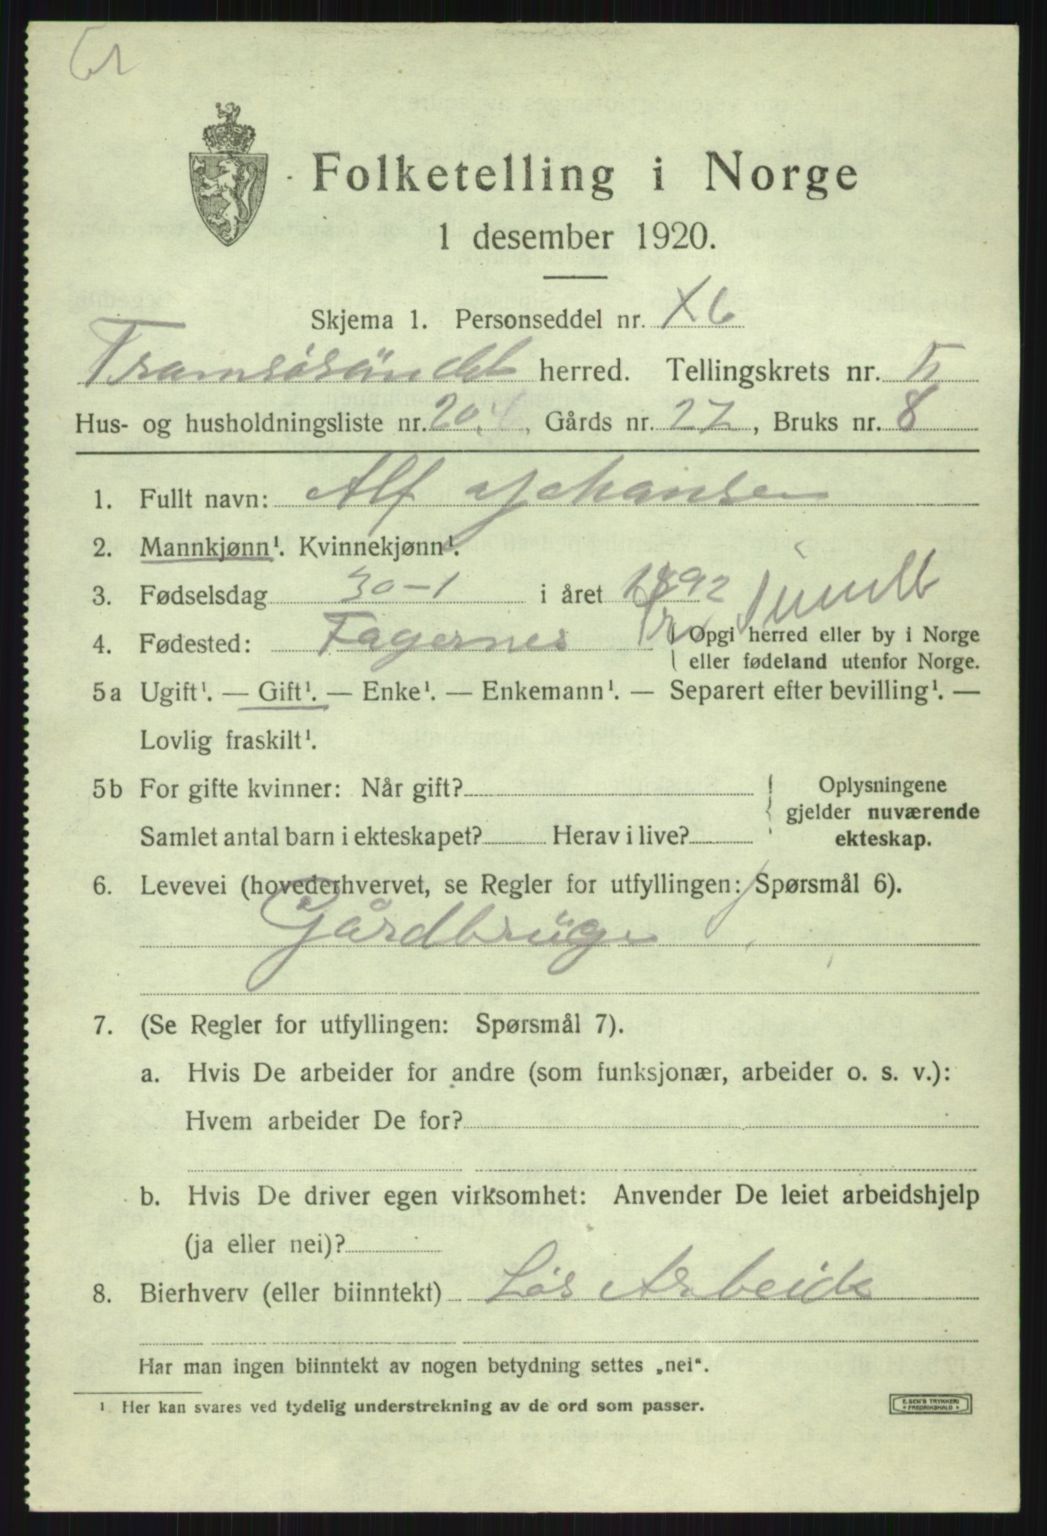 Folketelling i Norge
1 desember 1920.
Skjema 1. Personseddel nr. X6
Tromsøsündet herred. Tellingskrets nr. 5
Hus- og husholdningsliste nr. 20,4, Gårds nr. 27, Bruks nr. 8
1. Fullt navn: Alf Johansen
2. Mannkjønn¹. Kvinnekjønn¹.
3. Fødselsdag 30-1 i året 1892
4. Fødested: Fagernes Opgi herred eller by i Norge
eller fødeland utenfor Norge.
5a Ugift¹. — Gift¹. — Enke¹. — Enkemann¹. — Separert efter bevilling¹. —
Lovlig fraskilt¹.
5b For gifte kvinner: Når gift? Oplysningene
gjelder nuværende
Samlet antal barn i ekteskapet? Herav i live? ekteskap.
6. Levevei (hovederhvervet, se Regler for utfyllingen: Spørsmål 6).
Gårdbrüge
7. (Se Regler for utfyllingen: Spørsmål 7).
a. Hvis De arbeider for andre (som funksjonær, arbeider o. s. v.):
Hvem arbeider De for?
b. Hvis De driver egen virksomhet: Anvender De leiet arbeidshjelp
(ja eller nei)?
8. Bierhverv (eller biinntekt) Løs Arbeide
Har man ingen biinntekt av nogen betydning settes „nei“.
¹ Her kan svares ved tydelig understrekning av de ord som passer.